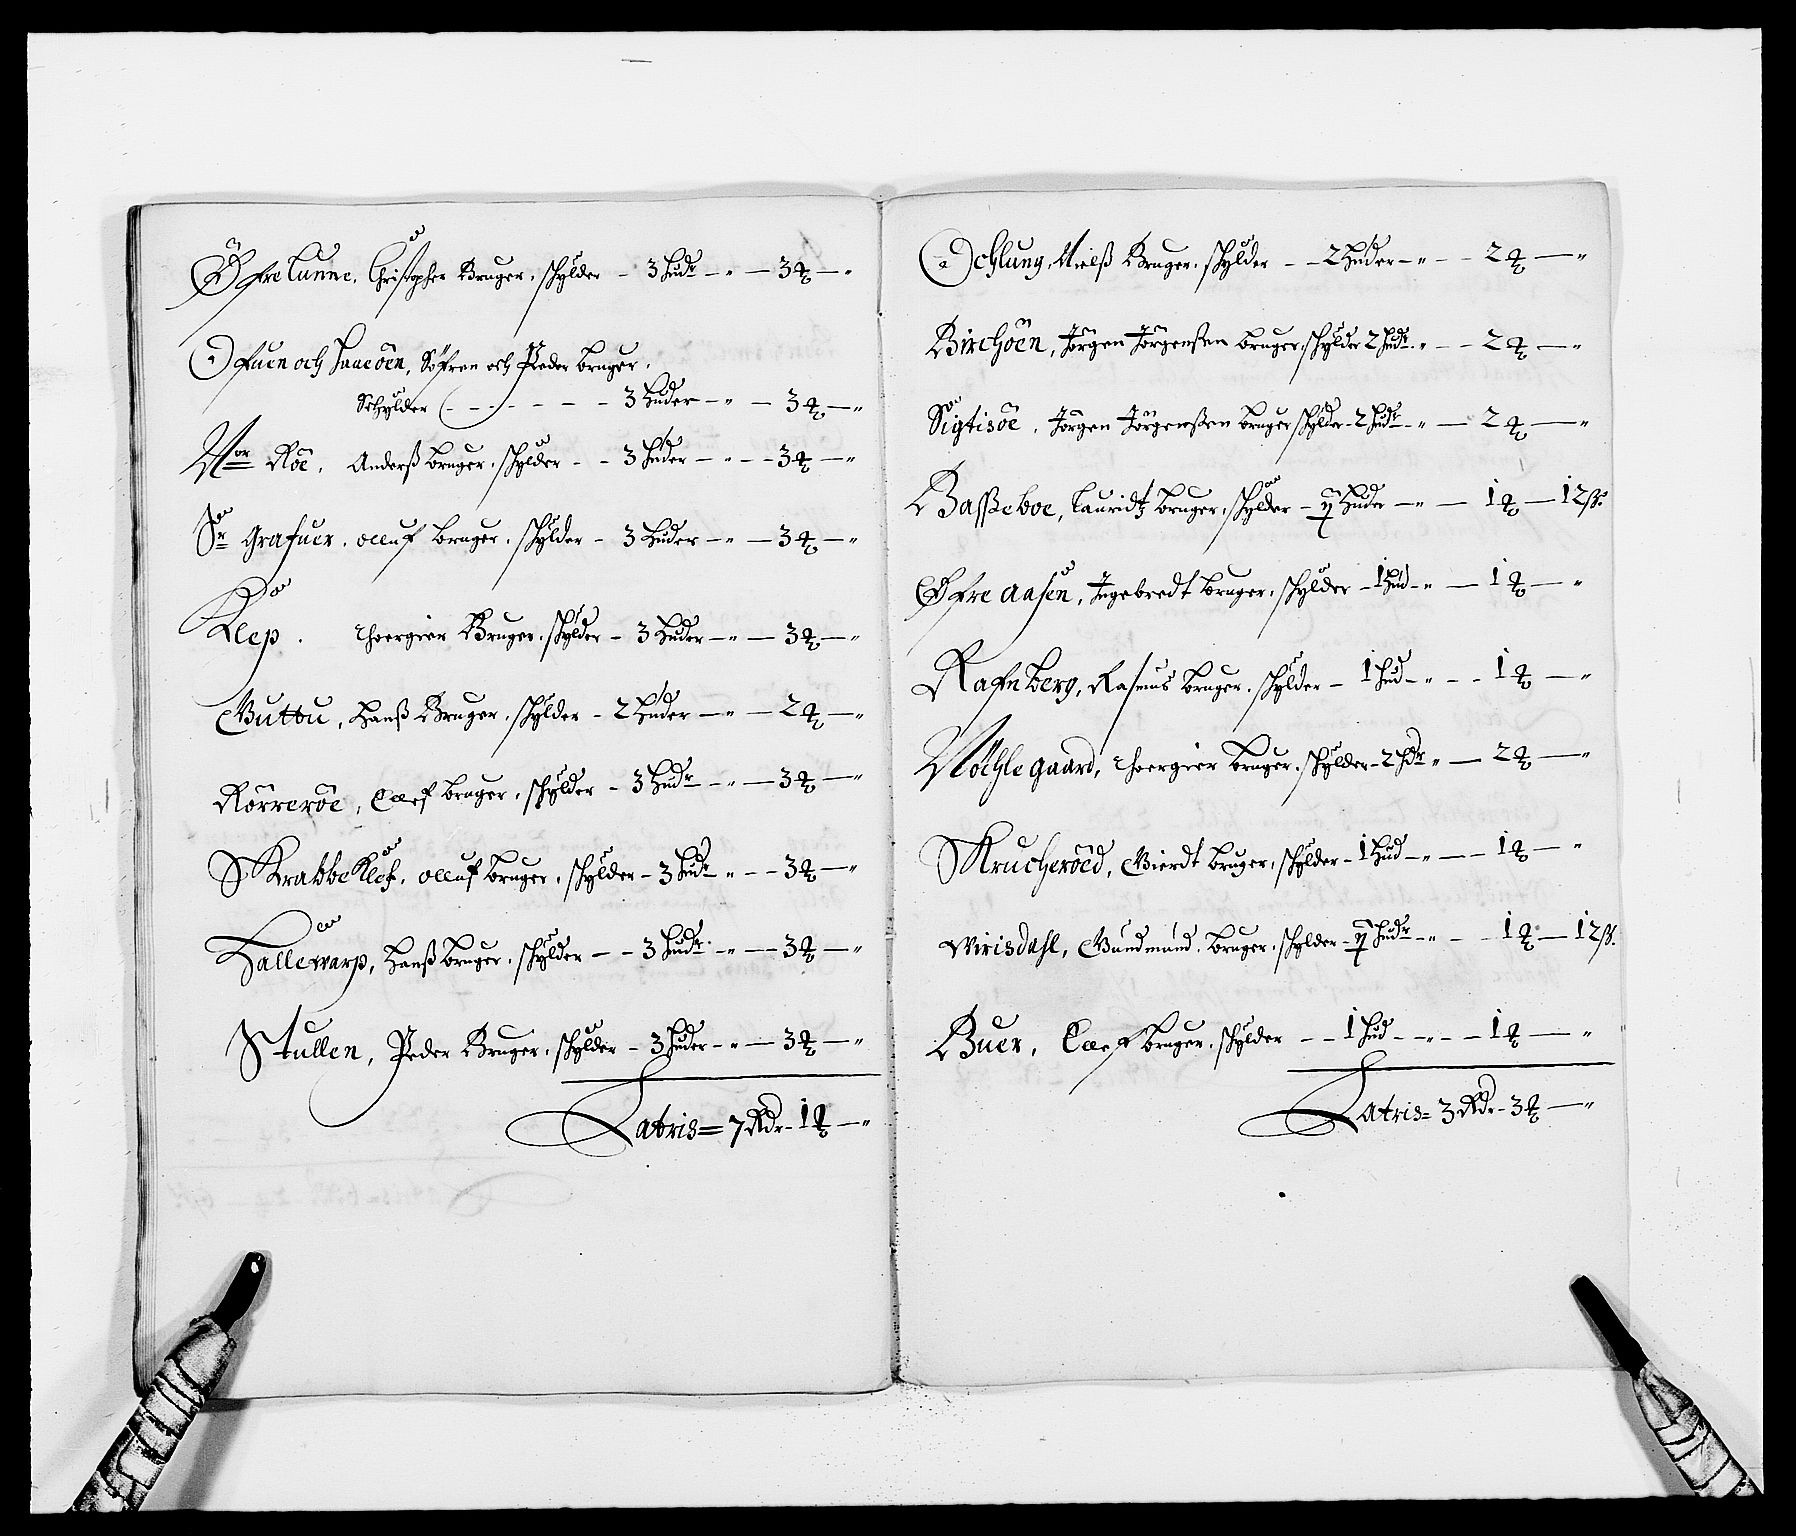 Øfre Tunne, Christopher Bruger, schylder - 3 hudr - " - 3 ℔ - "
Ofuen och Haaeöen, Söfren och Peder bruger,
Schylder ( - - - - - - 3 huder - " - 3 ℔ - "
Nor Röe, Anderß bruger, schylder - - 3 huder - " - 3 ℔ - "
Sr Grafuer, olluf bruger, schylder - 3 huder - " - 3 ℔ - "
Klep. thoergier Bruger, schylder - 3 huder - " - 3 ℔ - "
Guttu, Hanß Bruger, schylder - 2 huder - " - 2 ℔ - "
Rörreröe, Ellef bruger, schylder - 3 hudr - " - 3 ℔ - "
Krabbe Klef, olluf bruger, schylder - 3 hudr - " - 3 ℔ - "
Hallewarp, Hanß bruger, schylder - - 3 hudr - " - 3 ℔ - "
Stullen, Peder Bruger, schylder - 3 huder - " - 3 ℔ - "
Latris = 7 Rdr - 1 ℔ - "
Ochlung, Nielß Bruger, schylder - - 2 huder - " - 2 ℔ - "
Birchöen, Jörgen Jörgenßen bruger, schylder 2 hudr - " - 2 ℔ - "
Sigtisöe, Jörgen Jörgenßen bruger schylder - 2 hudr - " - 2 ℔ - "
Baßeboe, lauridtz bruger, schylder - huder - " - 1 ℔ - 12 ß
Øfre Aasen, Ingebredt bruger, schylder - 1 hud - " - 1 ℔ - "
Rafnberg, Rasmus bruger, schylder - 1 hud - " - 1 ℔ - "
Nöchlegaard, thoergier bruger, schylder - 2 hdr " - 2 ℔ - "
Krucheröed, Gierdt bruger, schylder - 1 hud - " - 1 ℔ - "
Wirisdahl, Gundmund bruger, schylder - hudr - " - 1 ℔ - 12 ß.
Buer, Ellef bruger, schylder - - 1 hud - " - 1 ℔ - "
Latris = 3 Rdr - 3 ℔ - "